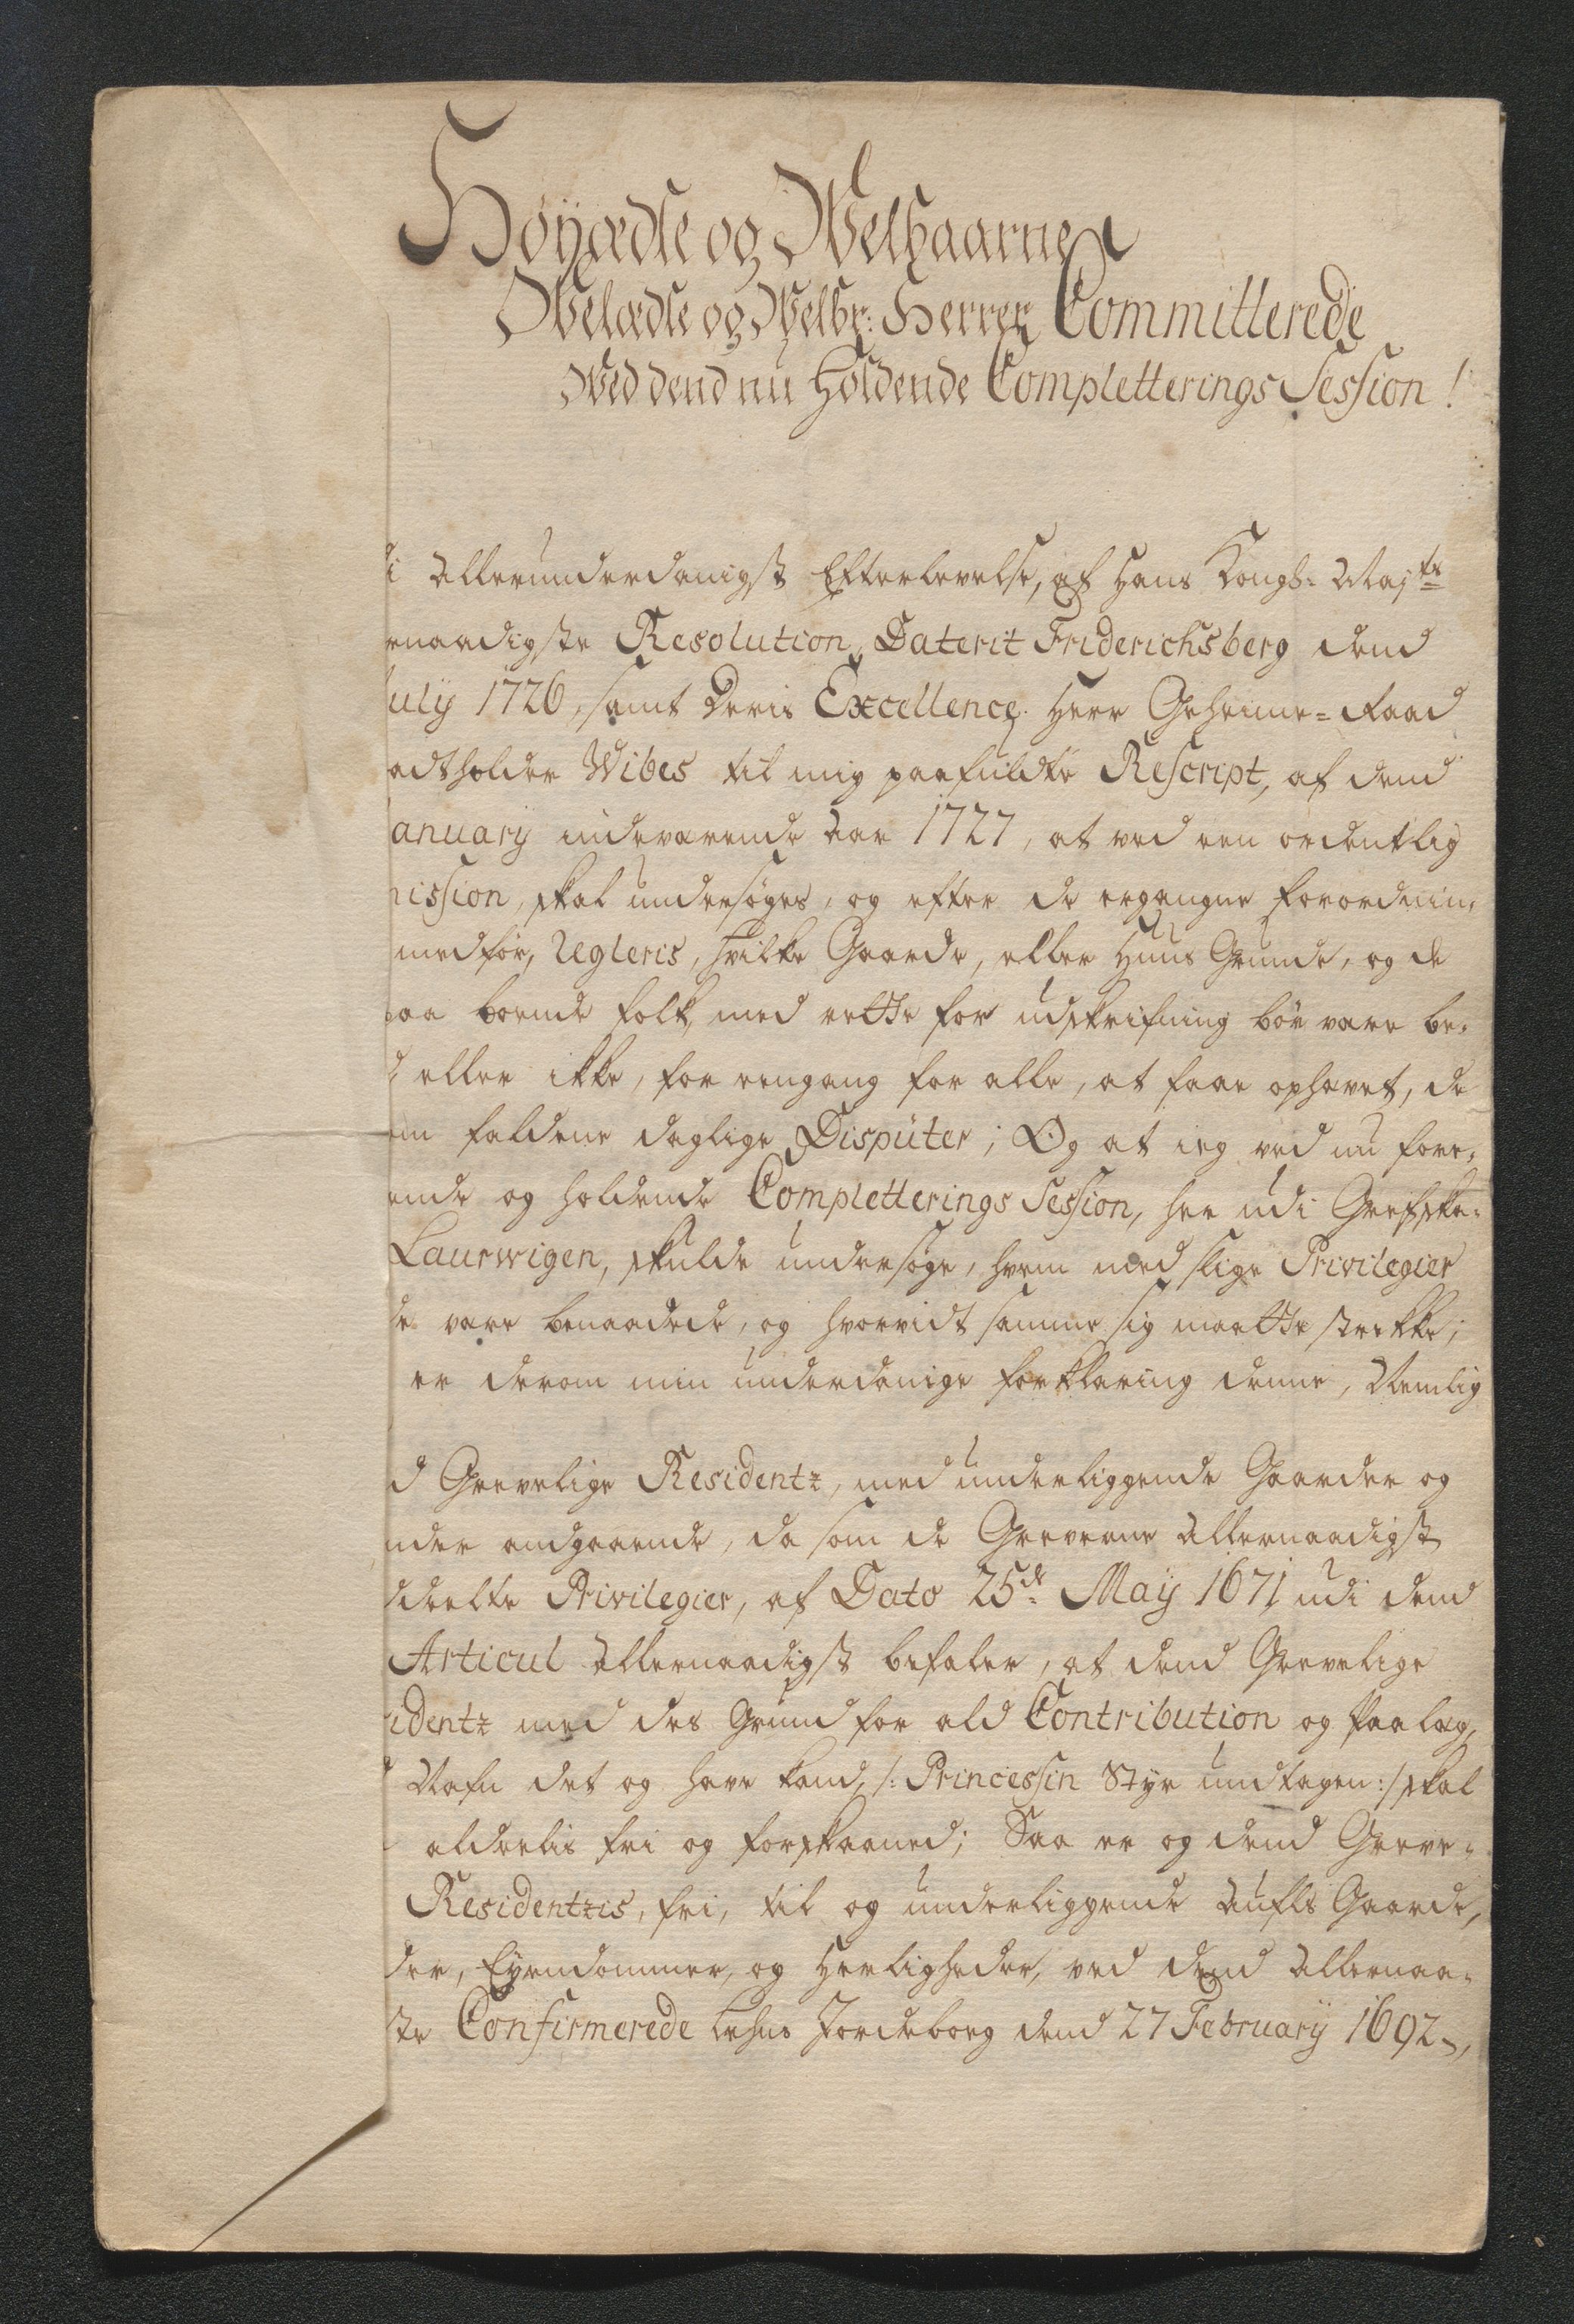 Höÿædle og Welbaarne
Welædle og Welbr: Herrer Committerede
Wed dend nu holdende Completterings Session!
di Allerunderdanigst Efterlevelse, af Hans Kongl: Maj:ts
rnaadigste Resolution, Daterit Friderichsberg dend
July 1726, samt Deris Excellence Herr Geheime=Raad
adtholder Wibes til mig paafuldte Rescript, af dend
anuarÿ indeværende Aar 1727, at ved een ordentlig
mission, skal undersøges, og efter de ergangne forordnin,
medfør, Regleris, hvilke Gaarde, eller Huus Grunde, og de
paa boende folk, med rette for udskrifning bør være be,
d eller ikke, for eengang for alle, at faae ophævet, de
om faldene daglige Dispüter; Og at ieg ved nu fore,
ende og holdende Completterings Session, her udi Grefska,
Laurwigen, skulde undersøge, hvem med slige Privilegier
de være benaadede, og hvorvidt samme sig maatte strekke;
er derom min underdanige forklaring denne, Nemlig
d Grevelige Residentz, med underliggende Gaarder og
nder andgaaende, da som de Greverne Allernaadigst
ddeelte Privilegier, af Dato 25:de Maÿ 1671 udi dend
Articul Allernaadigst befaler, at dend Grevelige
identz med des Grund for ald Contribution og Paalæg,
d Nafn det og have kand, /: Princessin Styr undtagen:/ skal
alderlis fri og forskaaned; Saa er og dend Greve,
Residentzis, fri, til og underliggende Aufls Gaarde,
der, Eyendommer, og Herligheder, ved dend Allernaa,
ste Confirmerede Lehns Jordebog dend 27 Februarÿ 1692,